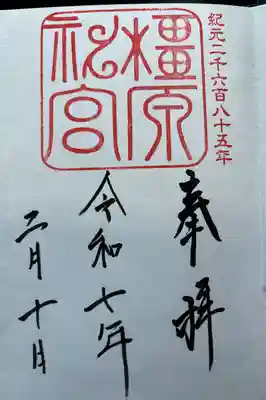 紀元二千六百八十五年
橿原神宮
奉拝
令和七年
二月十日